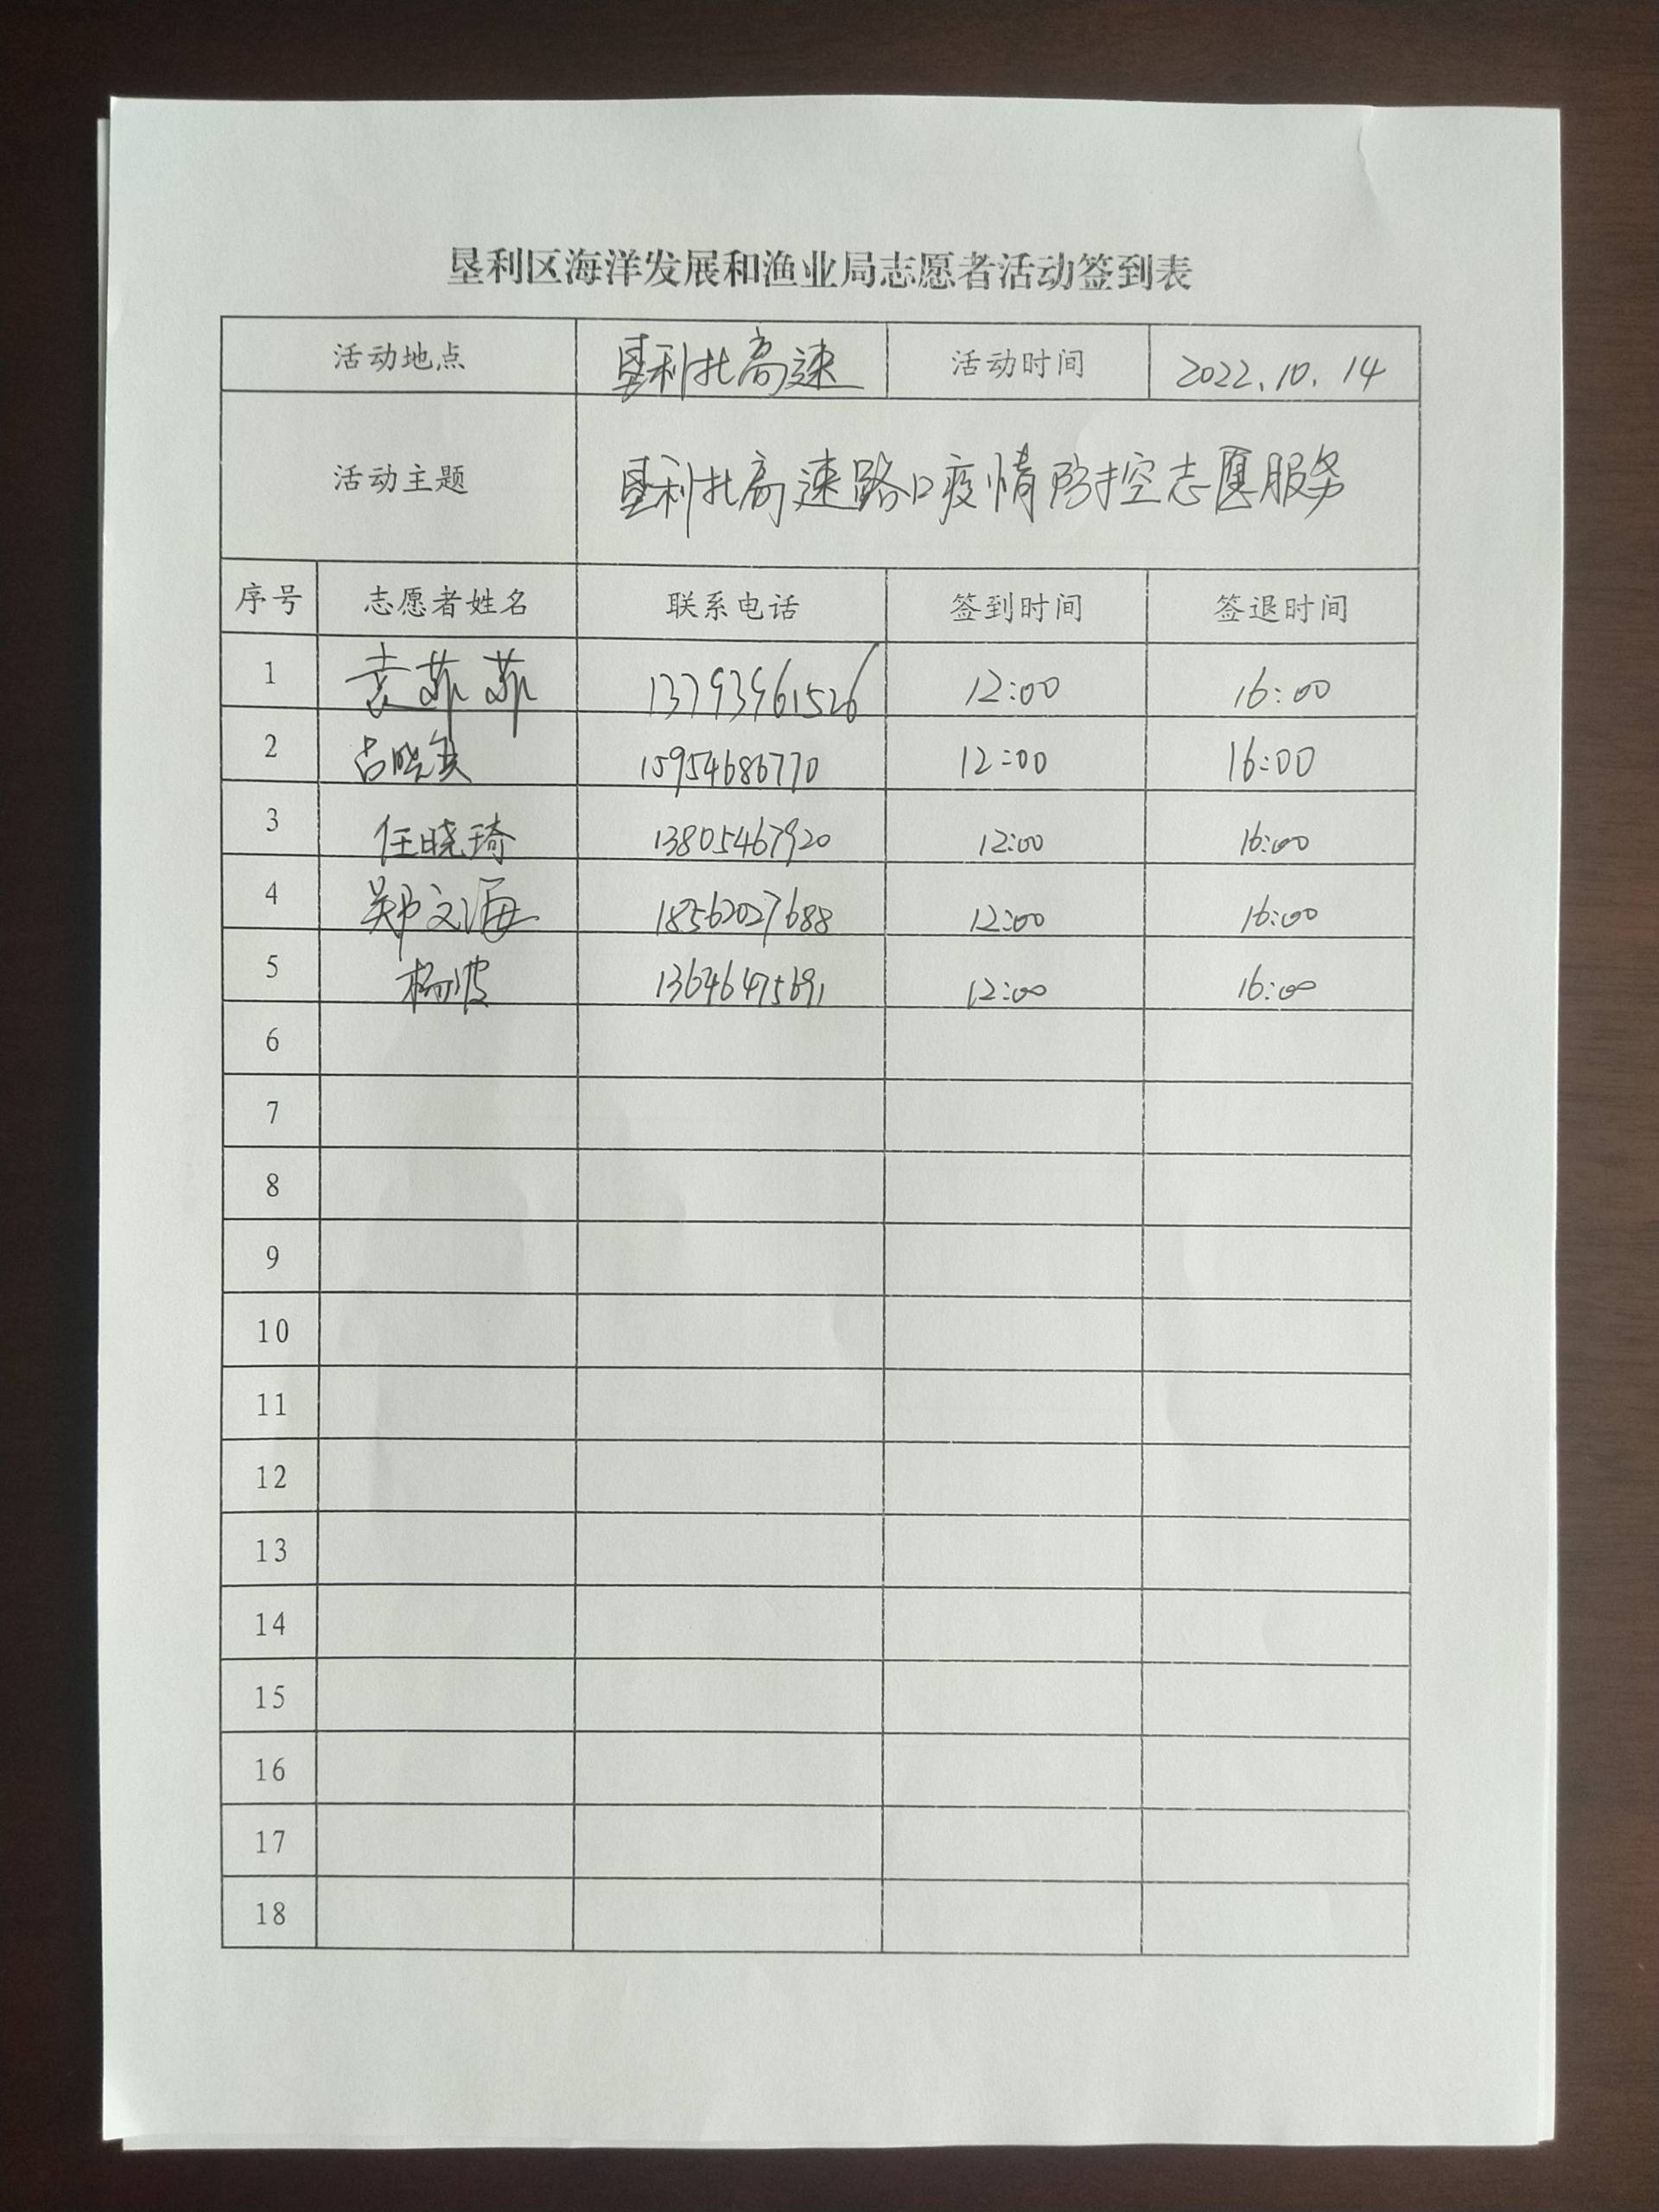 垦利区海洋发展和渔业局志愿者活动签到表
活动地点 垦利北高速 活动时间 2022.10.14
活动主题 垦利北高速路口疫情防控志愿服务
序号 志愿者姓名 联系电话 签到时间 签退时间
1 袁菲菲 13793961526 12:00 16:00
2 15954686770 12:00 16:00
3 任晓琦 13805467920 12:00 16:00
4 郑文海 18562027688 12:00 16:00
5 杨波 12:00 16:00
6
7
8
9
10
11
12
13
14
15
16
17
18